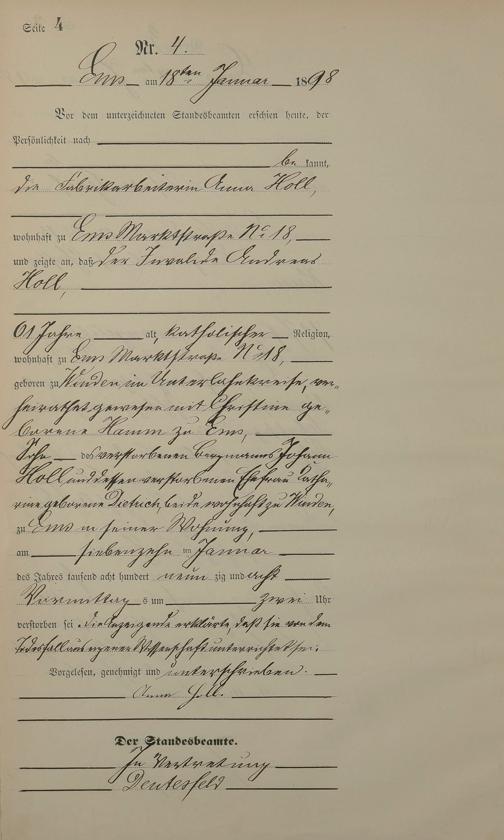 Seite 4
Nr. 4.
Ems am 18ten Januar 1898
Vor dem unterzeichneten Standesbeamten erschien heute, der
Persönlichkeit nach
be kannt,
die Fabrikarbeiterin Anna Holl,
wohnhaft zu Ems Marktstraße No 18,
und zeigte an, daß der Invalide Andreas
Holl,
61 Jahre alt, katholischer Religion,
wohnhaft zu Ems Marktstraße No 18,
geboren zu Winden im Unterlahnkreise, ver-
heirathet gewesen mit Christine ge-
borene Hamm zu Ems,
Sohn des verstorbenen Bergmanns Johann
Holl und dessen verstorbenen Ehefrau Catha-
rine geborene beide wohnhaft zu Winden,
zu Ems in seiner Wohnung,
am siebenzehn im Januar
des Jahres tausend acht hundert neun zig und acht
Vormittag s um zwei Uhr
verstorben sei. Die Anzeigende erklärte, daß sie von dem
Todesfall aus eigener Wissenschaft unterrichtet sei.
Vorgelesen, genehmigt und unterschrieben.
Anna Holl.
Der Standesbeamte.
In Vertretung